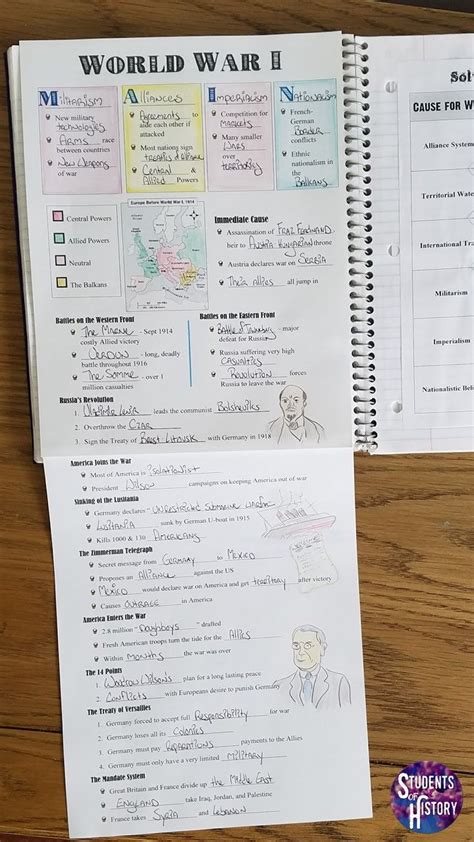 WORLD WAR I
MILITARISM
New military
technologies
Arms race
between countries
New Weapons
of war
ALLIANCES
Agreements to
aide each other if
attacked
Most nations sign
treaties of alliance
Central &
Allied Powers
IMPERIALISM
Competition for
Markets
Many smaller
Wars
over
territories
NATIONALISM
French-
German
Border
conflicts
Ethnic
nationalism in the
Balkans
Central Powers
Allied Powers
Neutral
The Balkans
Europe Before World War I, 1914
Immediate Cause
Assassination of Franz Ferdinand,
heir to Austria Hungarian throne
Austria declares war on Serbia
Their allies all jump in
Battles on the Western Front
The Marne - Sept 1914
costly Allied victory
Verdun - long, deadly
battle throughout 1916
The Somme - over 1
million casualties
Battles on the Eastern Front
Battle of - major
defeat for Russia
Russia suffering very high
casualties
Revolution forces
Russia to leave the war
Russia's Revolution
1. Vladimir Lenin leads the communist Bolsheviks
2. Overthrow the Czar
3. Sign the Treaty of Brest Litovsk with Germany in 1918
America Joins the War
Most of America is isolationist
President Wilson campaigns on keeping America out of war
Sinking of the Lusitania
Germany declares "Unrestricted submarine warfare"
Lusitania sunk by German U-boat in 1915
Kills 1000 & 130 Americans
The Zimmerman Telegraph
Secret message from Germany to Mexico
Proposes an Alliance against the US
Mexico would declare war on America and get territory after victory
Causes outrage in America
America Enters the War
2.8 million "Doughboys" drafted
Fresh American troops turn the tide for the Allies
Within months the war was over
The 14 Points
1. Woodrow Wilsons plan for a long lasting peace
2. Conflicts with Europeans desire to punish Germany
The Treaty of Versailles
1. Germany forced to accept full Responsibility for war
2. Germany loses all its Colonies
3. Germany must pay reparations payments to the Allies
4. Germany must only have a very limited military
The Mandate System
Great Britain and France divide up the Middle East
England take Iraq, Jordan, and Palestine
France takes Syria and Lebanon
CAUSE FOR W
Alliance System
Territorial Water
International Tra
Militarism
Imperialism
Nationalistic Beli
STUDENTS
OF
HISTORY